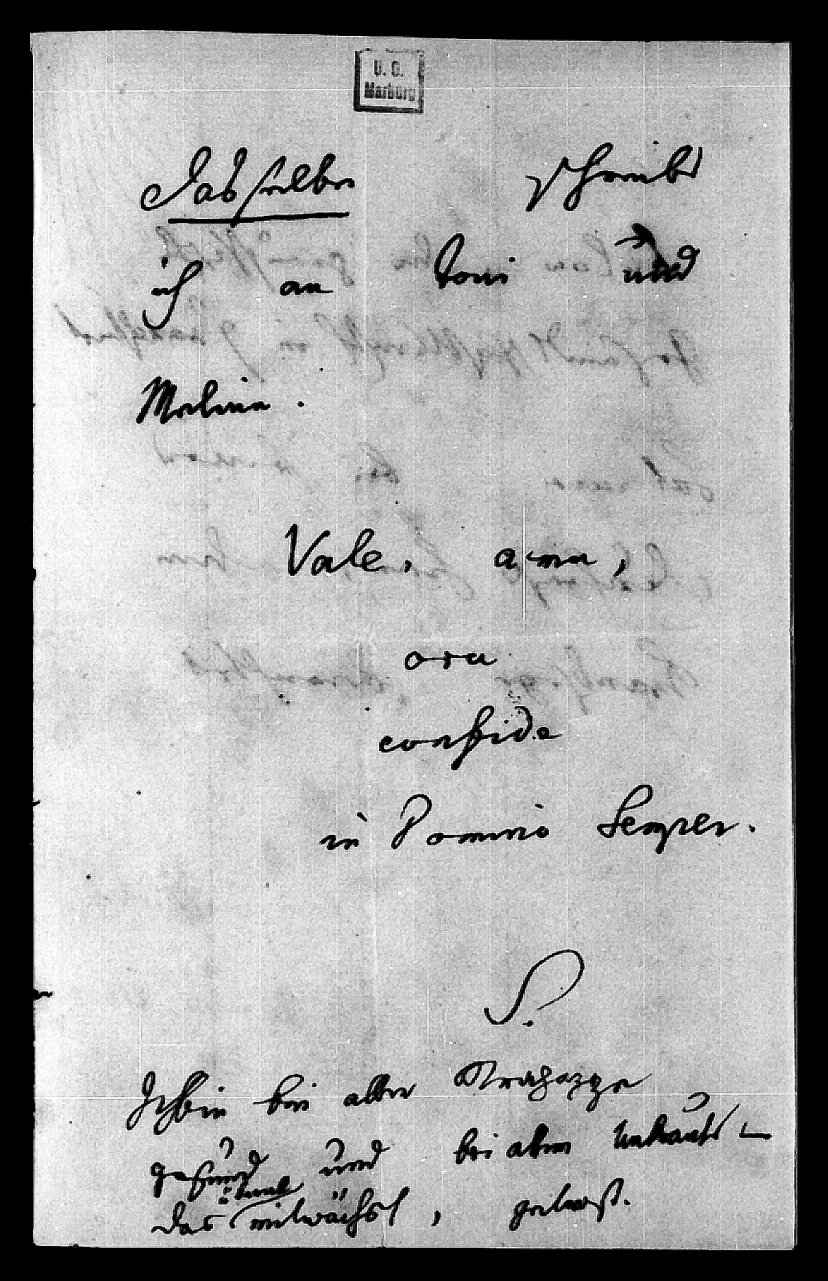 U. G.
Marburg
Dasselbe schreibe
ich an Toni und
Meline.
Vale, ama,
ora
confide
in Domino Semper.
S.
Ich bin bei aller Strapazze
gesund und bei allem Unkraut
das mitwächst, getrost.